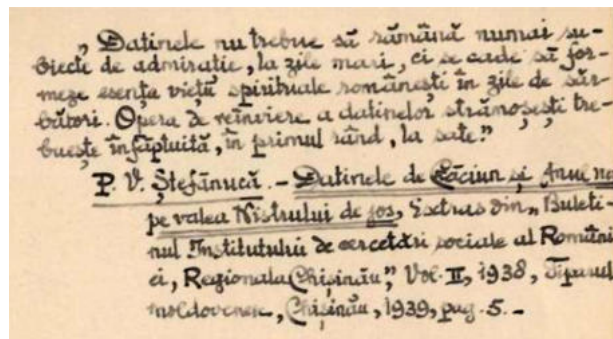 „Datinele nu trebue să rămână numai su-
biecte de admirație, la zile mari, ci se cade să for-
meze esența vieții spirituale românești în zile de săr-
bători. Opera de reînviere a datinelor strămoșești tre-
buește înfăptuită, în primul rând, la sate."
P. V. Ștefănucă. - Datinele de Crăciun și Anul no
pe valea Nistrului de jos, Extras din „Buleti-
nul Institutului de cercetări sociale al Români
ei, Regionala Chișinău", Vol. II, 1938, Tiparul
moldovenesc, Chișinău, 1939, pag. 5. -